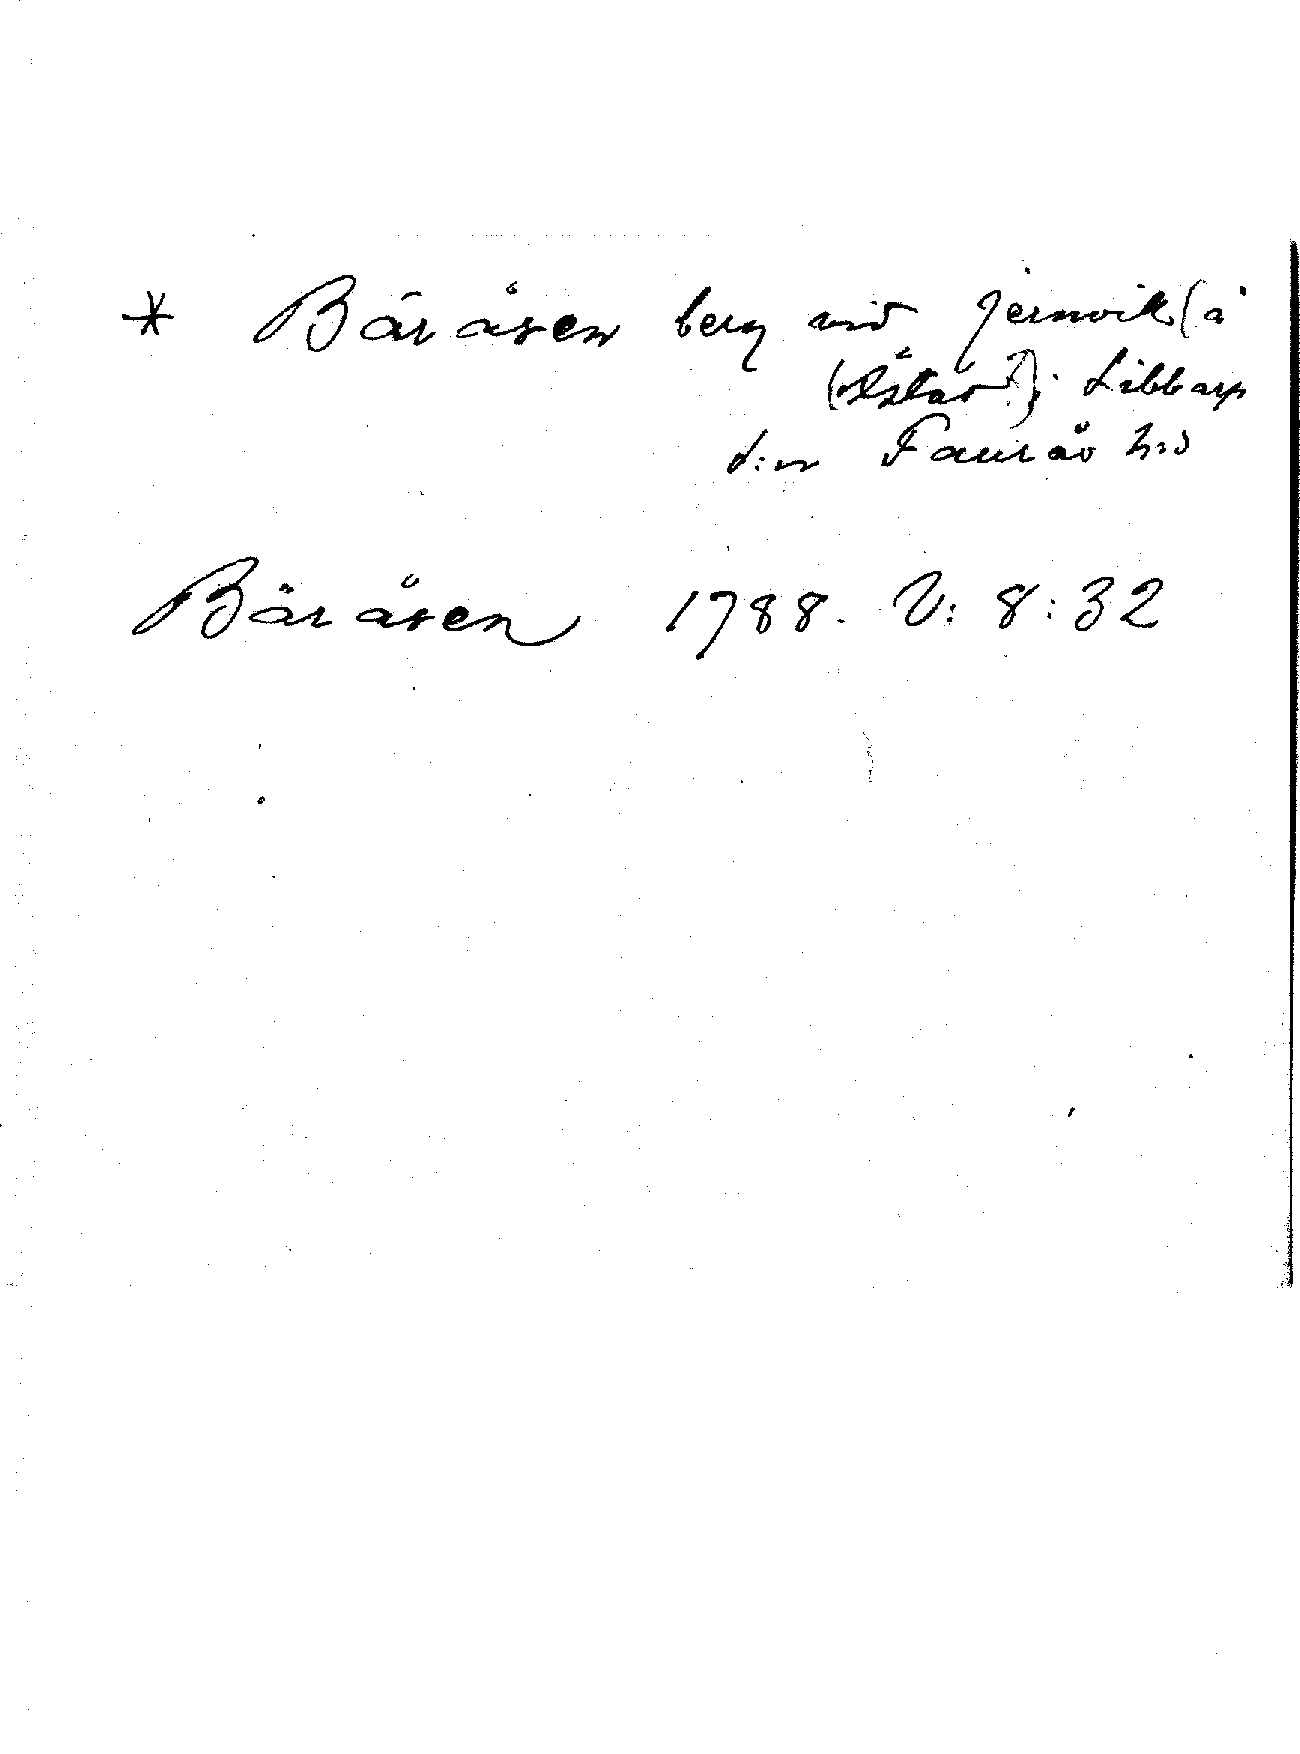 * Bäråsen berg vid Jernvik (å
Libbarp
s:n Faurås hrd
Bäråsen 1788. V: 8:32